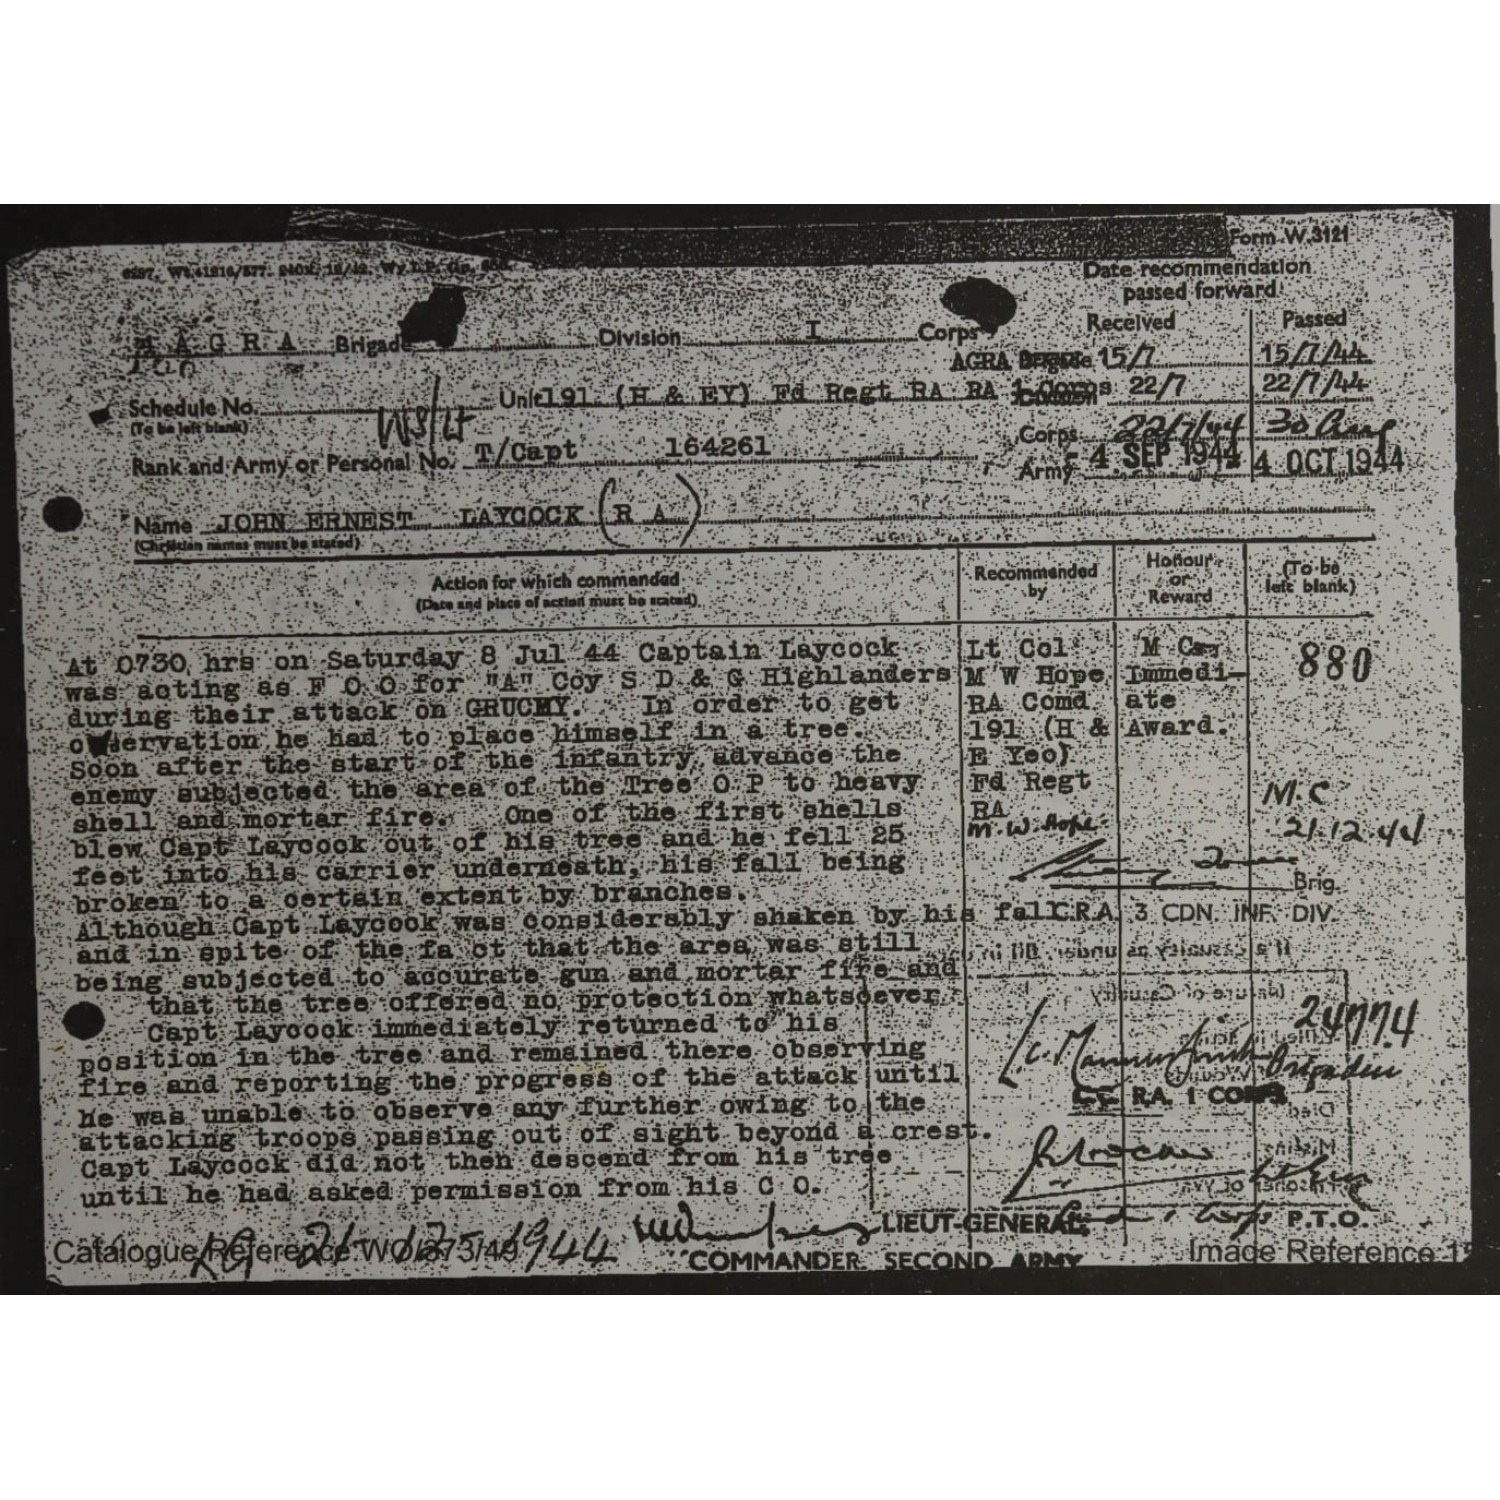 Form W.3121
Date recommendation
passed forward
Received Passed
A G R A Brigade Division I Corps
AGRA 15/7 15/7/44
Schedule No. Unit 191 (H & EY) Fd Regt RA RA 1 Corps 22/7 22/7/44
(To be left blank)
Corps 22/7/44 30 Aug
Rank and Army or Personal No. T/Capt 164261
Army 4 SEP 1944 4 OCT 1944
Name JOHN ERNEST LAYCOCK (R A)
(Christian names must be stated)
Action for which commended
(Date and place of action must be stated)
Recommended
by
Honour
or
Reward
(To be
left blank)
At 0730 hrs on Saturday 8 Jul 44 Captain Laycock
was acting as F O O for "A" Coy S D & G Highlanders
during their attack on GRUCHY. In order to get
observation he had to place himself in a tree.
Soon after the start of the infantry advance the
enemy subjected the area of the Tree O P to heavy
shell and mortar fire. One of the first shells
blew Capt Laycock out of his tree and he fell 25
feet into his carrier underneath, his fall being
broken to a certain extent by branches.
Although Capt Laycock was considerably shaken by his fall
and in spite of the fa ct that the area was still
being subjected to accurate gun and mortar fire and
that the tree offered no protection whatsoever
Capt Laycock immediately returned to his
position in the tree and remained there observing
fire and reporting the progress of the attack until
he was unable to observe any further owing to the
attacking troops passing out of sight beyond a crest.
Capt Laycock did not then descend from his tree
until he had asked permission from his C O.
Lt Col
M W Hope
RA Comd
191 (H &
E Yeo)
Fd Regt
RA
M.W. Hope
M C
Immedi-
ate
Award.
880
M.C
21.12.44
Brig.
C.R.A. 3 CDN. INF. DIV.
24774
Brigadier
RA. 1 CORPS
Lt Gen
1 Corps P.T.O.
LIEUT-GENERAL
COMMANDER, SECOND ARMY
LG 21-12-1944
Catalogue Reference WO/373/49
Image Reference